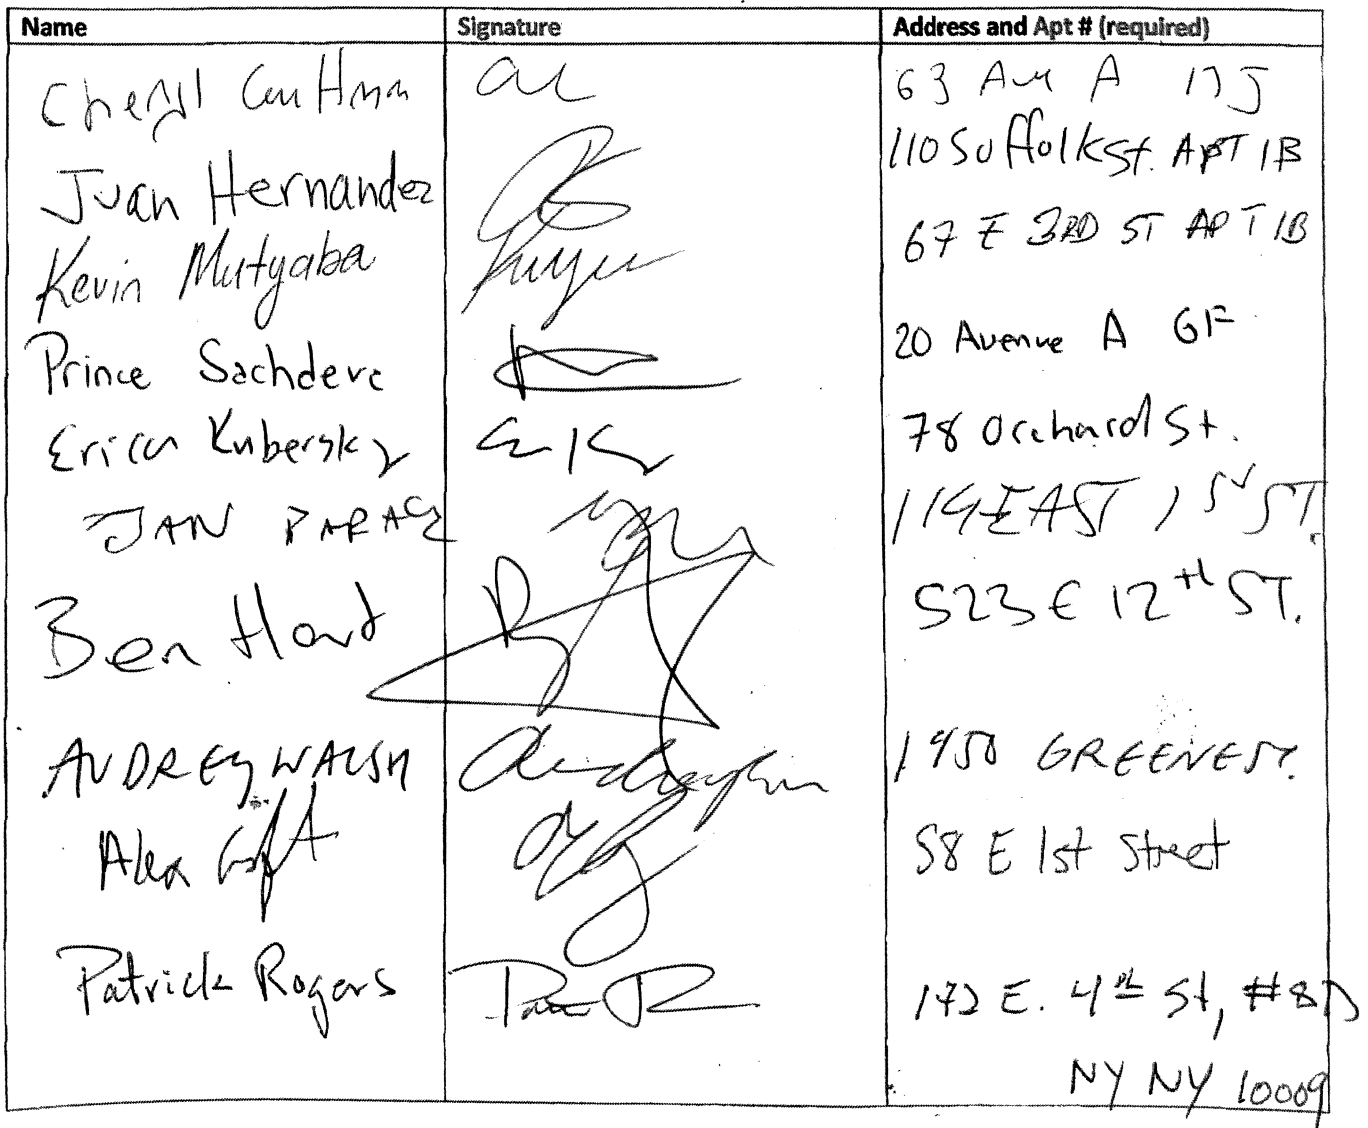 Name Signature Address and Apt # (required)
Cheryl 63 Ave A 17J
Juan Hernandez 110 Suffolk St. APT 1B
Kevin Mutyaba 67 E 3RD ST APT 1B
Prince Sachdeva 20 Avenue A GF
Erica Kubersky 78 Orchard St.
JAN EAST 1 ST.
Ben 523 E 12th ST.
AUDREY WALSH 1950 GREENE ST.
Alex 58 E 1st Street
Patrick Rogers 172 E. 4th St, #8D
NY NY 10009